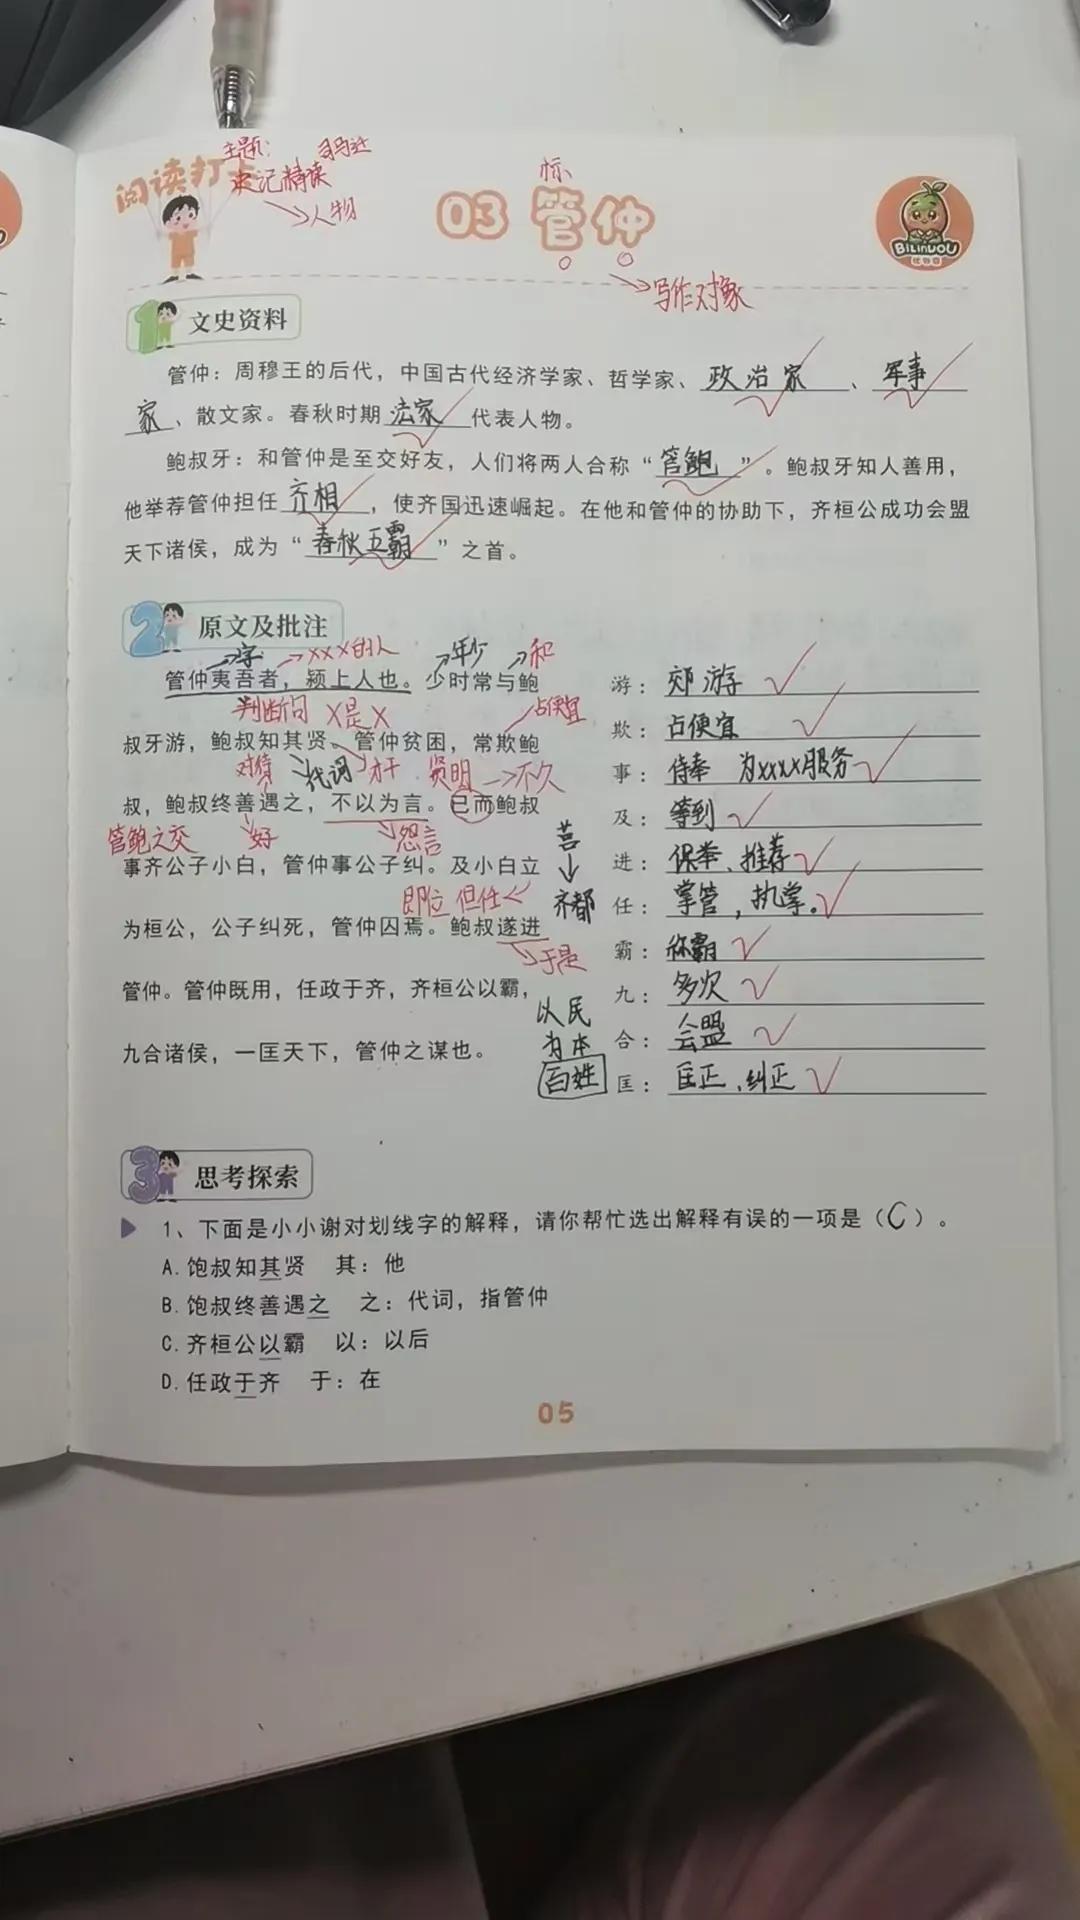 主题： 司马迁
阅读打卡
史记精读
人物
标
03 管仲
BILINUOU
写作对象
1 文史资料
管仲：周穆王的后代，中国古代经济学家、哲学家、政治家、军事
家、散文家。春秋时期法家代表人物。
鲍叔牙：和管仲是至交好友，人们将两人合称“管鲍”。鲍叔牙知人善用，
他举荐管仲担任齐相，使齐国迅速崛起。在他和管仲的协助下，齐桓公成功会盟
天下诸侯，成为“春秋五霸”之首。
2 原文及批注
字 XXX的人 年少 和
管仲夷吾者，颍上人也。少时常与鲍
判断句 X是X 占便宜
叔牙游，鲍叔知其贤。管仲贫困，常欺鲍
对待 代词 才干 贤明 不久
叔，鲍叔终善遇之，不以为言。已而鲍叔
管鲍之交 好 怨言
事齐公子小白，管仲事公子纠。及小白立
即位 担任
为桓公，公子纠死，管仲囚焉。鲍叔遂进
于是
管仲。管仲既用，任政于齐，齐桓公以霸，
九合诸侯，一匡天下，管仲之谋也。
莒
齐都
以民
为本
百姓
游：郊游
欺：占便宜
事：侍奉 为xxxx服务
及：等到
进：保举、推荐
任：掌管，执掌。
霸：称霸
九：多次
合：会盟
匡：匡正、纠正
3 思考探索
1、下面是小小谢对划线字的解释，请你帮忙选出解释有误的一项是（C）。
A.饱叔知其贤 其：他
B.饱叔终善遇之 之：代词，指管仲
C.齐桓公以霸 以：以后
D.任政于齐 于：在
05